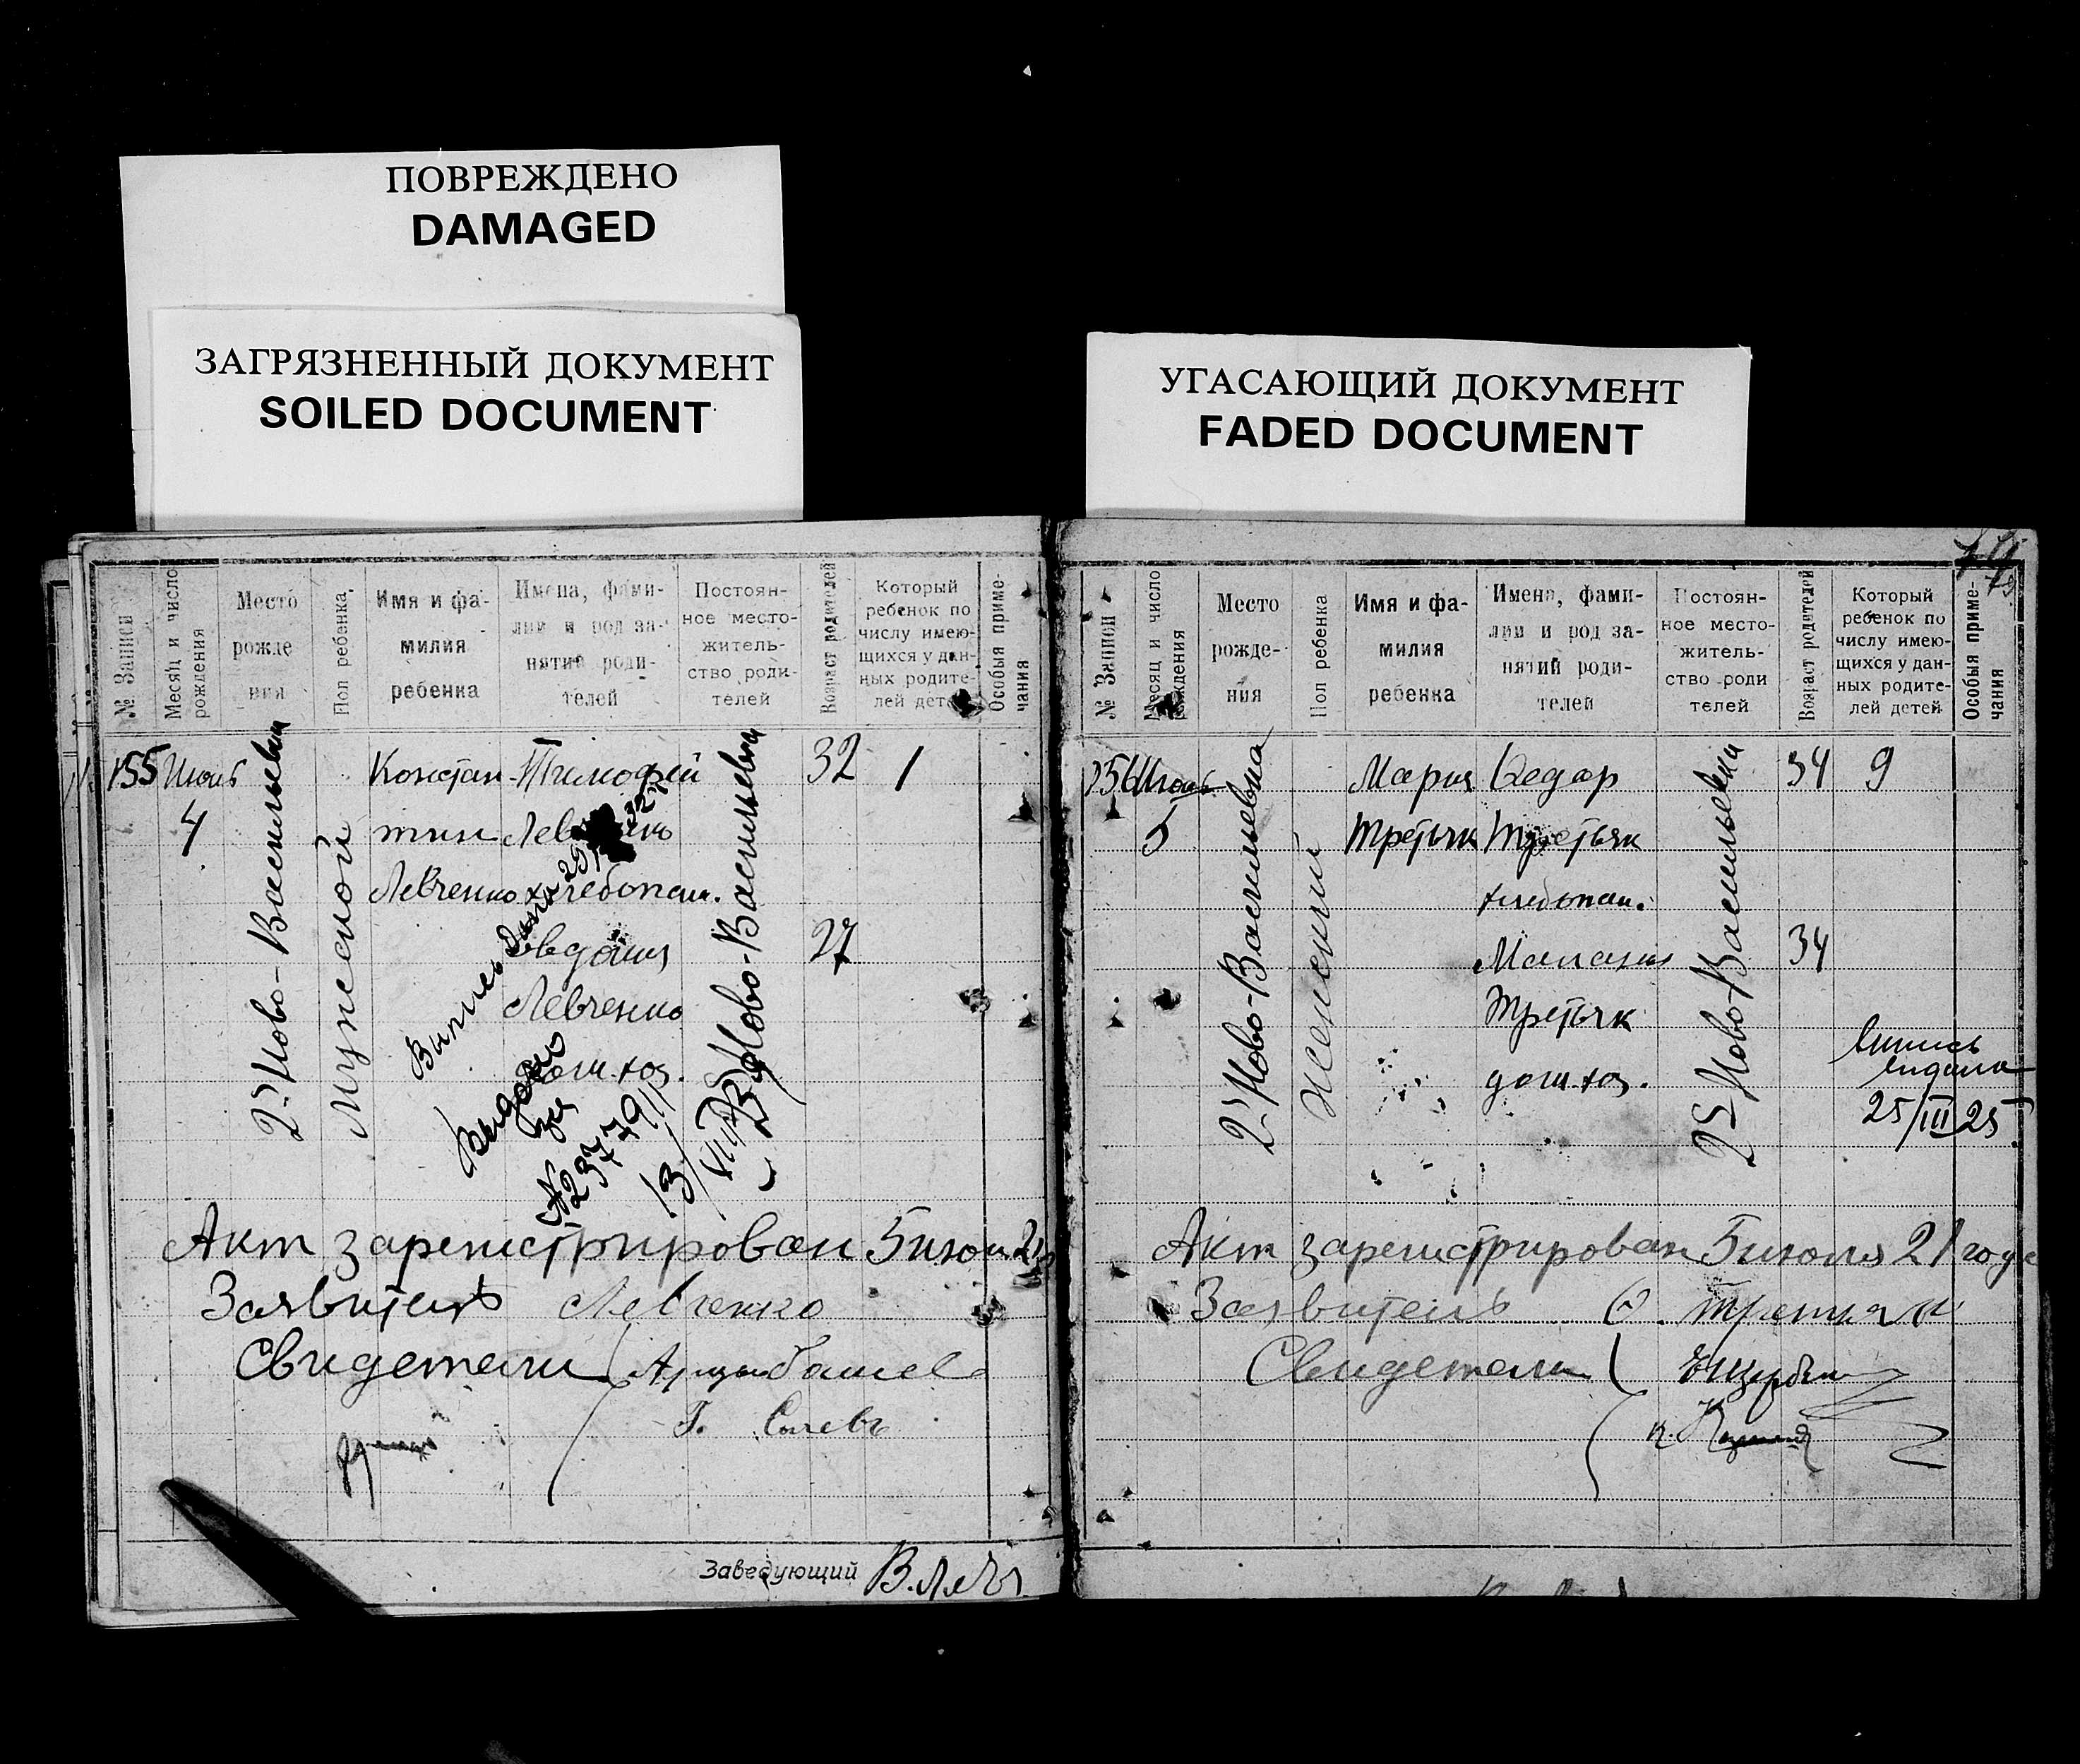 ПОВРЕЖДЕНО
DAMAGED
ЗАГРЯЗНЕННЫЙ ДОКУМЕНТ
SOILED DOCUMENT
УГАСАЮЩИЙ ДОКУМЕНТ
FADED DOCUMENT
№ Записи
Месяц и число рождения
Место рожде ния
Пол ребенка
Имя и фа-
милия
ребенка
Имена, фами-
лии и род за-
нятий роди-
телей
Постоян-
ное место-
житель-
ство роди-
телей
Возраст родителей
Который
ребенок по
числу имею-
щихся у дан-
ных родите-
лей детей
Особыя приме-
чания
155 Июль Констан- Тимофей 32 1
4 тин Левченко
Левченко хлебопаш.
Евдокия 27
Левченко
дом. хоз.
2я Ново-Васильевка
Мужской
2я Ново-Васильевка
Выпись
Выдано
№ 23779
13/VIII
Акт зарегистрирован 5 июля 21
Заявитель Левченко
Свидетели
Г.
Заведующий
№ Записи
Месяц и число рождения
Место
рожде-
ния
Пол ребенка
Имя и фа-
милия
ребенка
Имена, фами-
лии и род за-
нятий роди-
телей
Постоян-
ное место-
житель-
ство роди
телей
Возраст родителей
Который
ребенок по
числу имею-
щихся у дан-
ных родите-
лей детей
Особыя приме-
чания
156 Июль Мария Федор 34 9
5 Третьяк Третьяк
хлебопаш.
Малания 34
Третьяк
дом. хоз.
2я Ново-Васильевка
Женский
2я Ново-Васильевка
Выпись
выдана
25/III 25
Акт зарегистрирован 5 июля 21 года
Заявитель Ф. Третяк
Свидетели